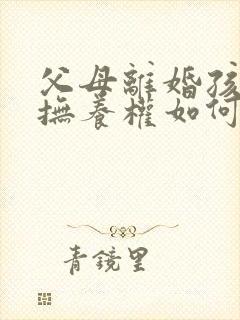 父母離婚孩
撫養權如何
青鏡里